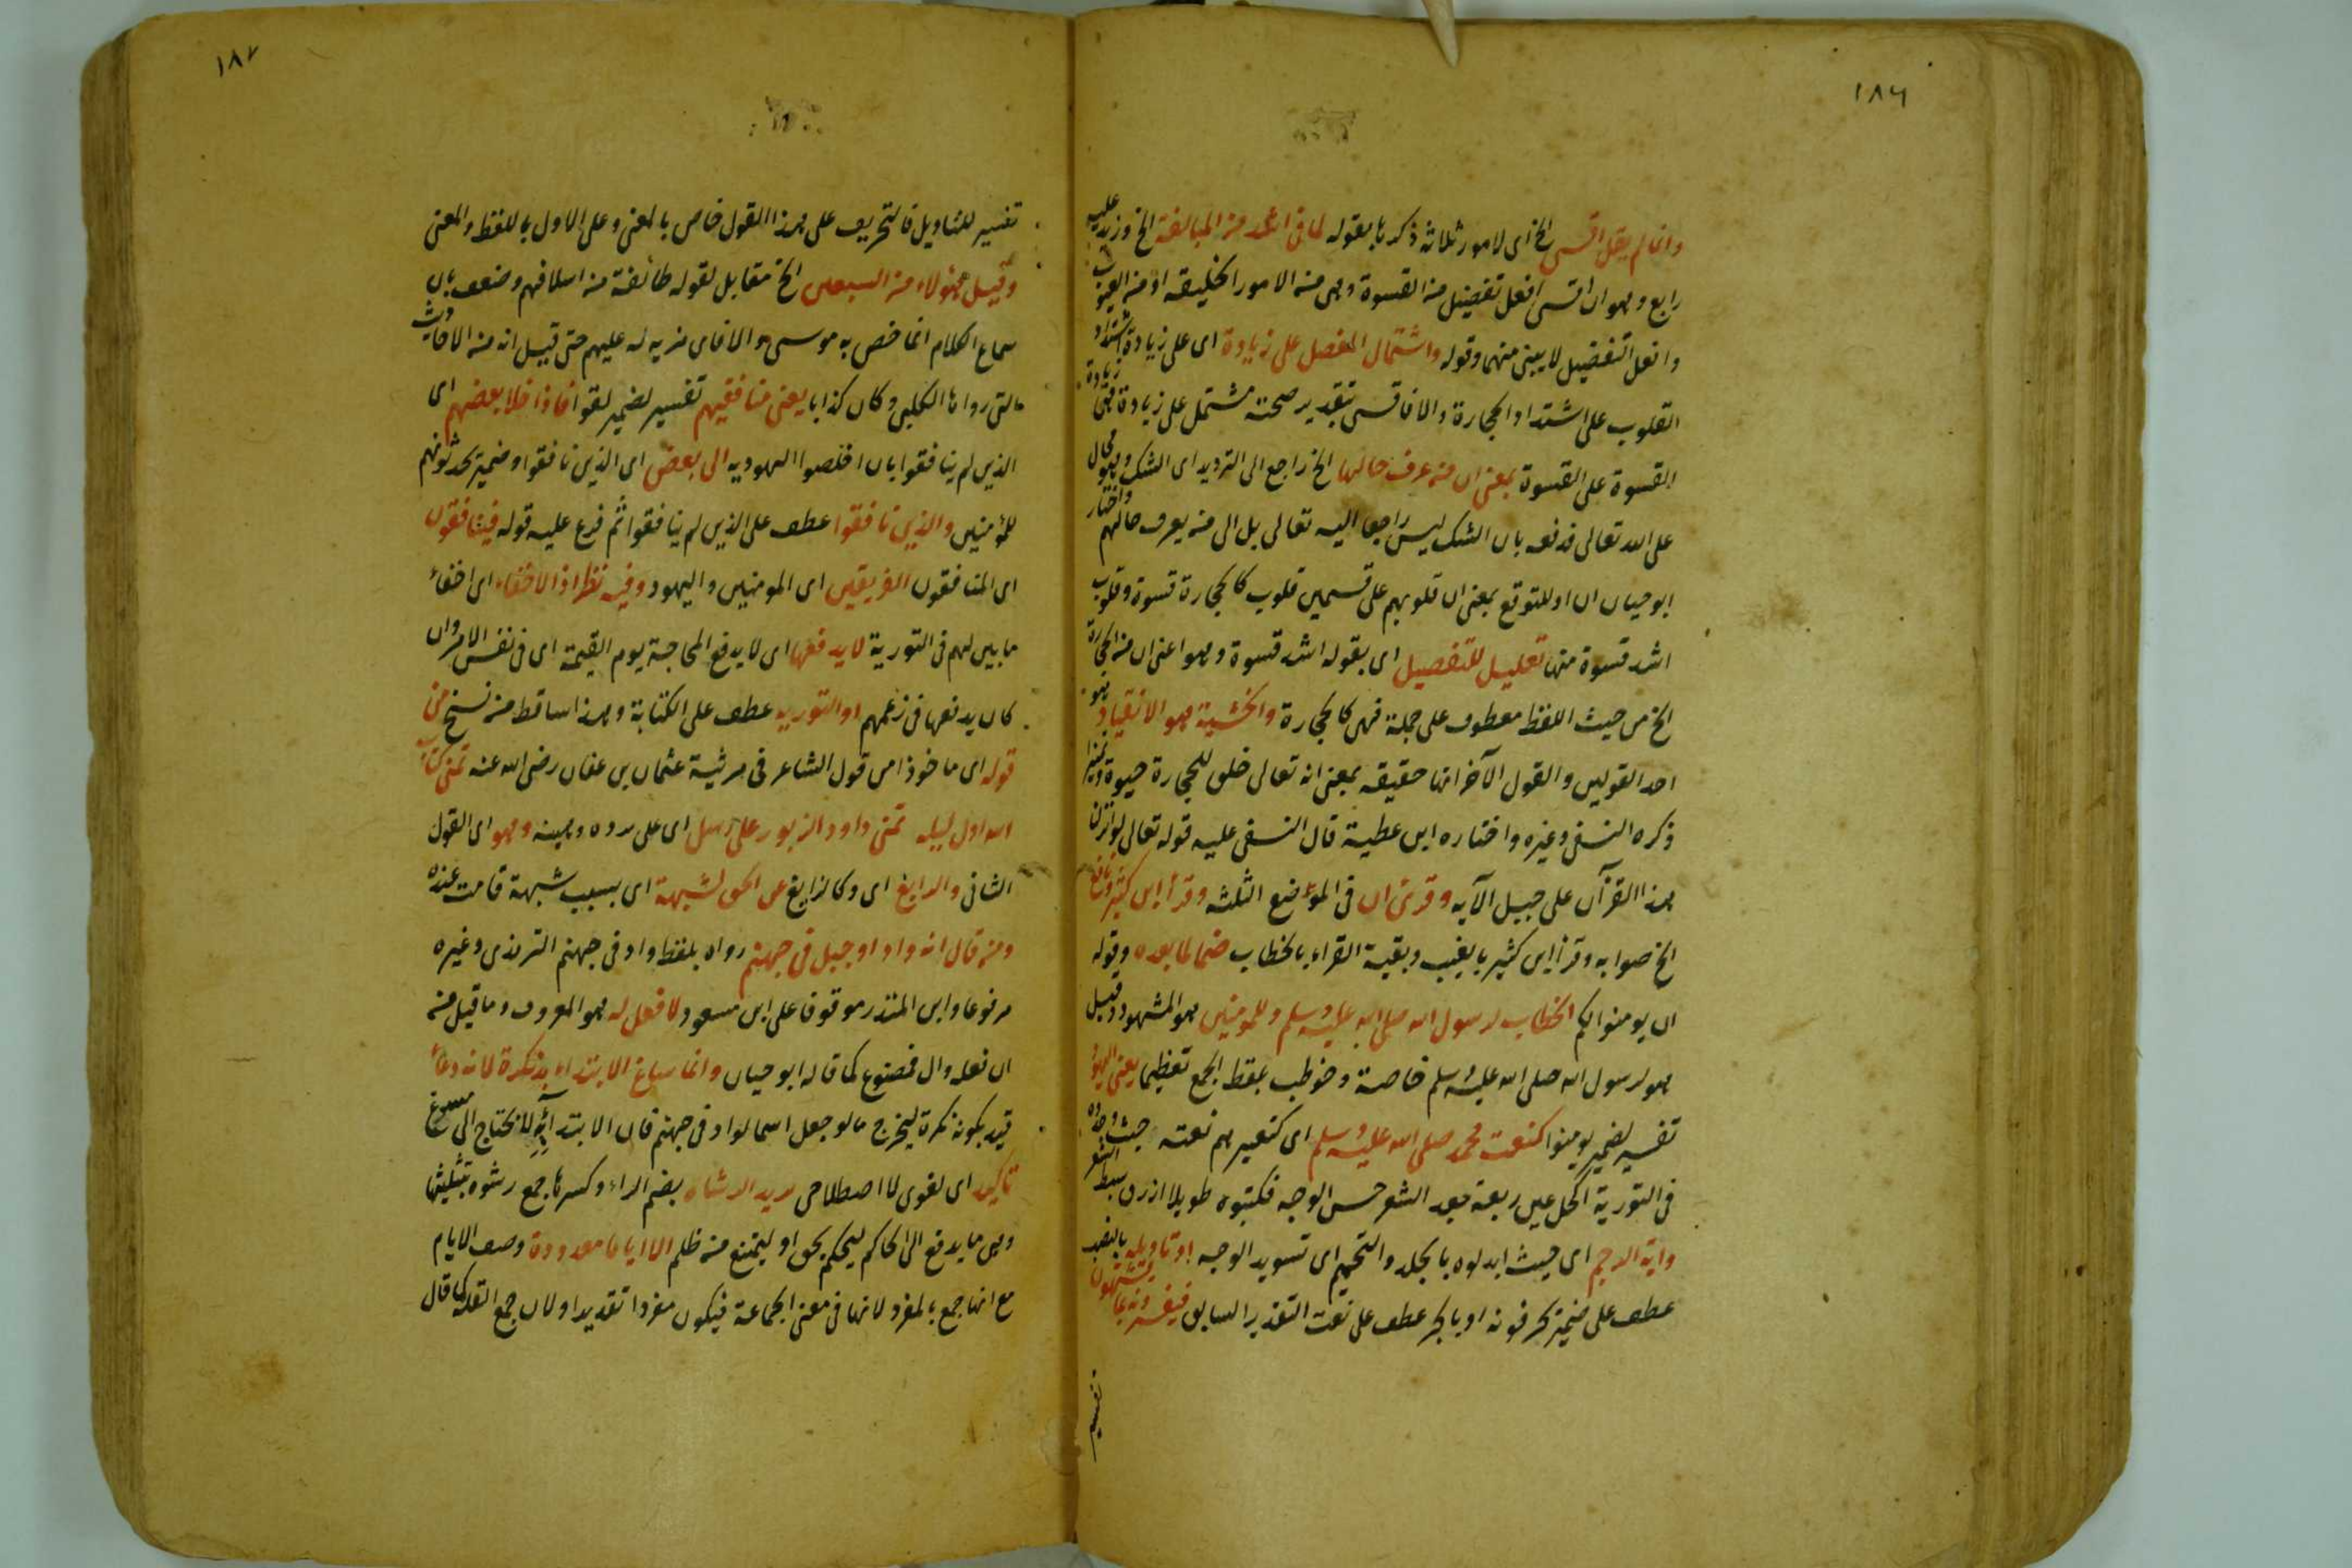 ١٨٦
وانما لم يقل اقسى الخ اى لامور ثلاثة ذكرها بقوله لما فى اشد من المبالغة الخ وزيد عليه
رابع وهو ان اقسى افعل تفضيل من القسوة وهى من الامور الخليقه او من العيوب
وافعل التفضيل لا يبنى منهما وقوله واشتمال المفضل على زيادة اى على زيادة اشتداد
القلوب على اشتداد الحجارة والا فاقسى بتقدير صحته مشتمل على زيادة زيادة
القسوة على القسوة بمعنى ان من عرف حالها الخ راجع الى الترديد اى الشك وهو محال
على الله تعالى فدفعه بان الشك ليس راجعا اليه تعالى بل الى من يعرف حالهم واختار
ابو حيان ان او للتنويع بمعنى ان قلوبهم على قسمين قلوب كالحجارة قسوة وقلوب
اشد قسوة منها تعليل للتفضيل اى بقوله اشد قسوة وهو اعنى ان من الحجارة
الخ من حيث اللفظ معطوف على جملة فهى كالحجارة والخشية هو الانقياد هو
احد القولين والقول الآخر انها حقيقه بمعنى انه تعالى خلق للحجارة حيوة وتمييزا
ذكره النسفى وغيره واختاره ابن عطية قال النسفى عليه قوله تعالى لو انزلنا
هذا القرآن على جبل الآيه وقرئ ان فى المواضع الثلثه وقرأ ابن كثير ونافع
الخ صوابه وقرأ ابن كثير بالغيب وبقية القراء بالخطاب ضما لما بعده وقوله
ان يومنوا لكم الخطاب لرسول الله صلى الله عليه وسلم وللمومنين هو المشهور وقيل
هو لرسول الله صلى الله عليه وسلم خاصة وخوطب بلفظ الجمع تعظيما يعنى اليهود
تفسير لضمير يومنوا كنعت محمد صلى الله عليه وسلم اى كتغييرهم نعته حيث وجدوه
فى التورية اكحل عين ربعة جعد الشعر حسن الوجه فكتبوه طويلا ازرق سبط الشعر
واية الرجم اى حيث ابدلوه بالجلد والتحميم اى تسويد الوجه او تاويله بالنصب
عطف على ضمير يحرفونه او بالجر عطف على نعت التقدير السابق فيفسرونه بما يشتهون
تفسير
١٨٧
تفسير للتاويل فالتحريف على هذا القول خاص بالمعنى وعلى الاول باللفظ والمعنى
وقيل هؤلاء من السبعين الخ مقابل لقوله طائفة من اسلافهم وضعف بان
سماع الكلام انما خص به موسى والا فاى مزية له عليهم حتى قيل انه من الاحاديث
التى رواها الكلبى وكان كذابا يعنى منافقيهم تفسير لضمير لقوا فاذا خلا بعضهم اى
الذين لم ينافقوا بان اخلصوا اليهوديه الى بعض اى الذين نافقوا وضمير تحدثونهم
للمؤمنين والذين نافقوا عطف على الذين لم ينافقوا ثم فرع عليه قوله فينافقون
اى المنافقون الفريقين اى المومنين واليهود وفيه نظر اذ الاخفاء اى اخفاء
ما بين لهم فى التورية لا يدفعها اى لا يدفع المحاجة يوم القيمة اى فى نفس الامر وان
كان يدفعها فى زعمهم او التوريه عطف على الكتابة وهذا ساقط من نسخ من
قوله اى ماخوذا من قول الشاعر فى مرثية عثمان بن عفان رضى الله عنه تمنى كتاب
الله اول ليله تمنى داود الزبور على رسل اى على تودة وهينه وهو اى القول
الثانى والزايغ اى وكالزايغ عن الحق لشبهة اى بسبب شبهة قامت عنده
ومن قال انه واد او جبل فى جهنم رواه بلفظ واد فى جهنم الترمذى وغيره
مرفوعا وابن المنذر موقوفا على ابن مسعود لا فعل له هو المعروف وما قيل من
ان فعله وال فمصنوع كما قاله ابو حيان وانما ساغ الابتداء به نكرة لانه دعاء
قيد بكونه نكرة ليخرج ما لو جعل اسما لواد فى جهنم فان الابتداء به لا يحتاج الى مسوغ
تاكيد اى لغوى لا اصطلاحى يريد الرشا بضم الراء وكسرها جمع رشوه بتثليثها
وهى ما يدفع الى الحاكم ليحكم بحق او ليمتنع من ظلم الا اياما معدودة وصف الايام
مع انها جمع بالمفرد لانها فى معنى الجماعة فيكون مفردا تقديرا ولان جمع القلة كما قال